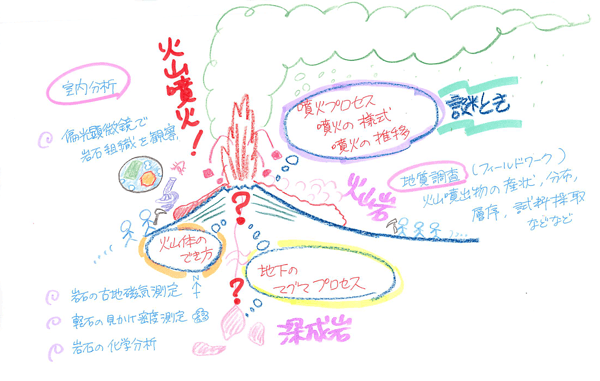 室内分析
偏光顕微鏡で
岩石組織を観察
火山噴火!
噴火プロセス
噴火の様式
噴火の推移
謎とき
地質調査(フィールドワーク)
火山噴出物の産状,分布,
層序,試料採取
などなど
火山岩
?
火山体の
でき方
?
地下の
マグマプロセス
深成岩
岩石の古地磁気測定
N
軽石の見かけ密度測定
岩石の化学分析